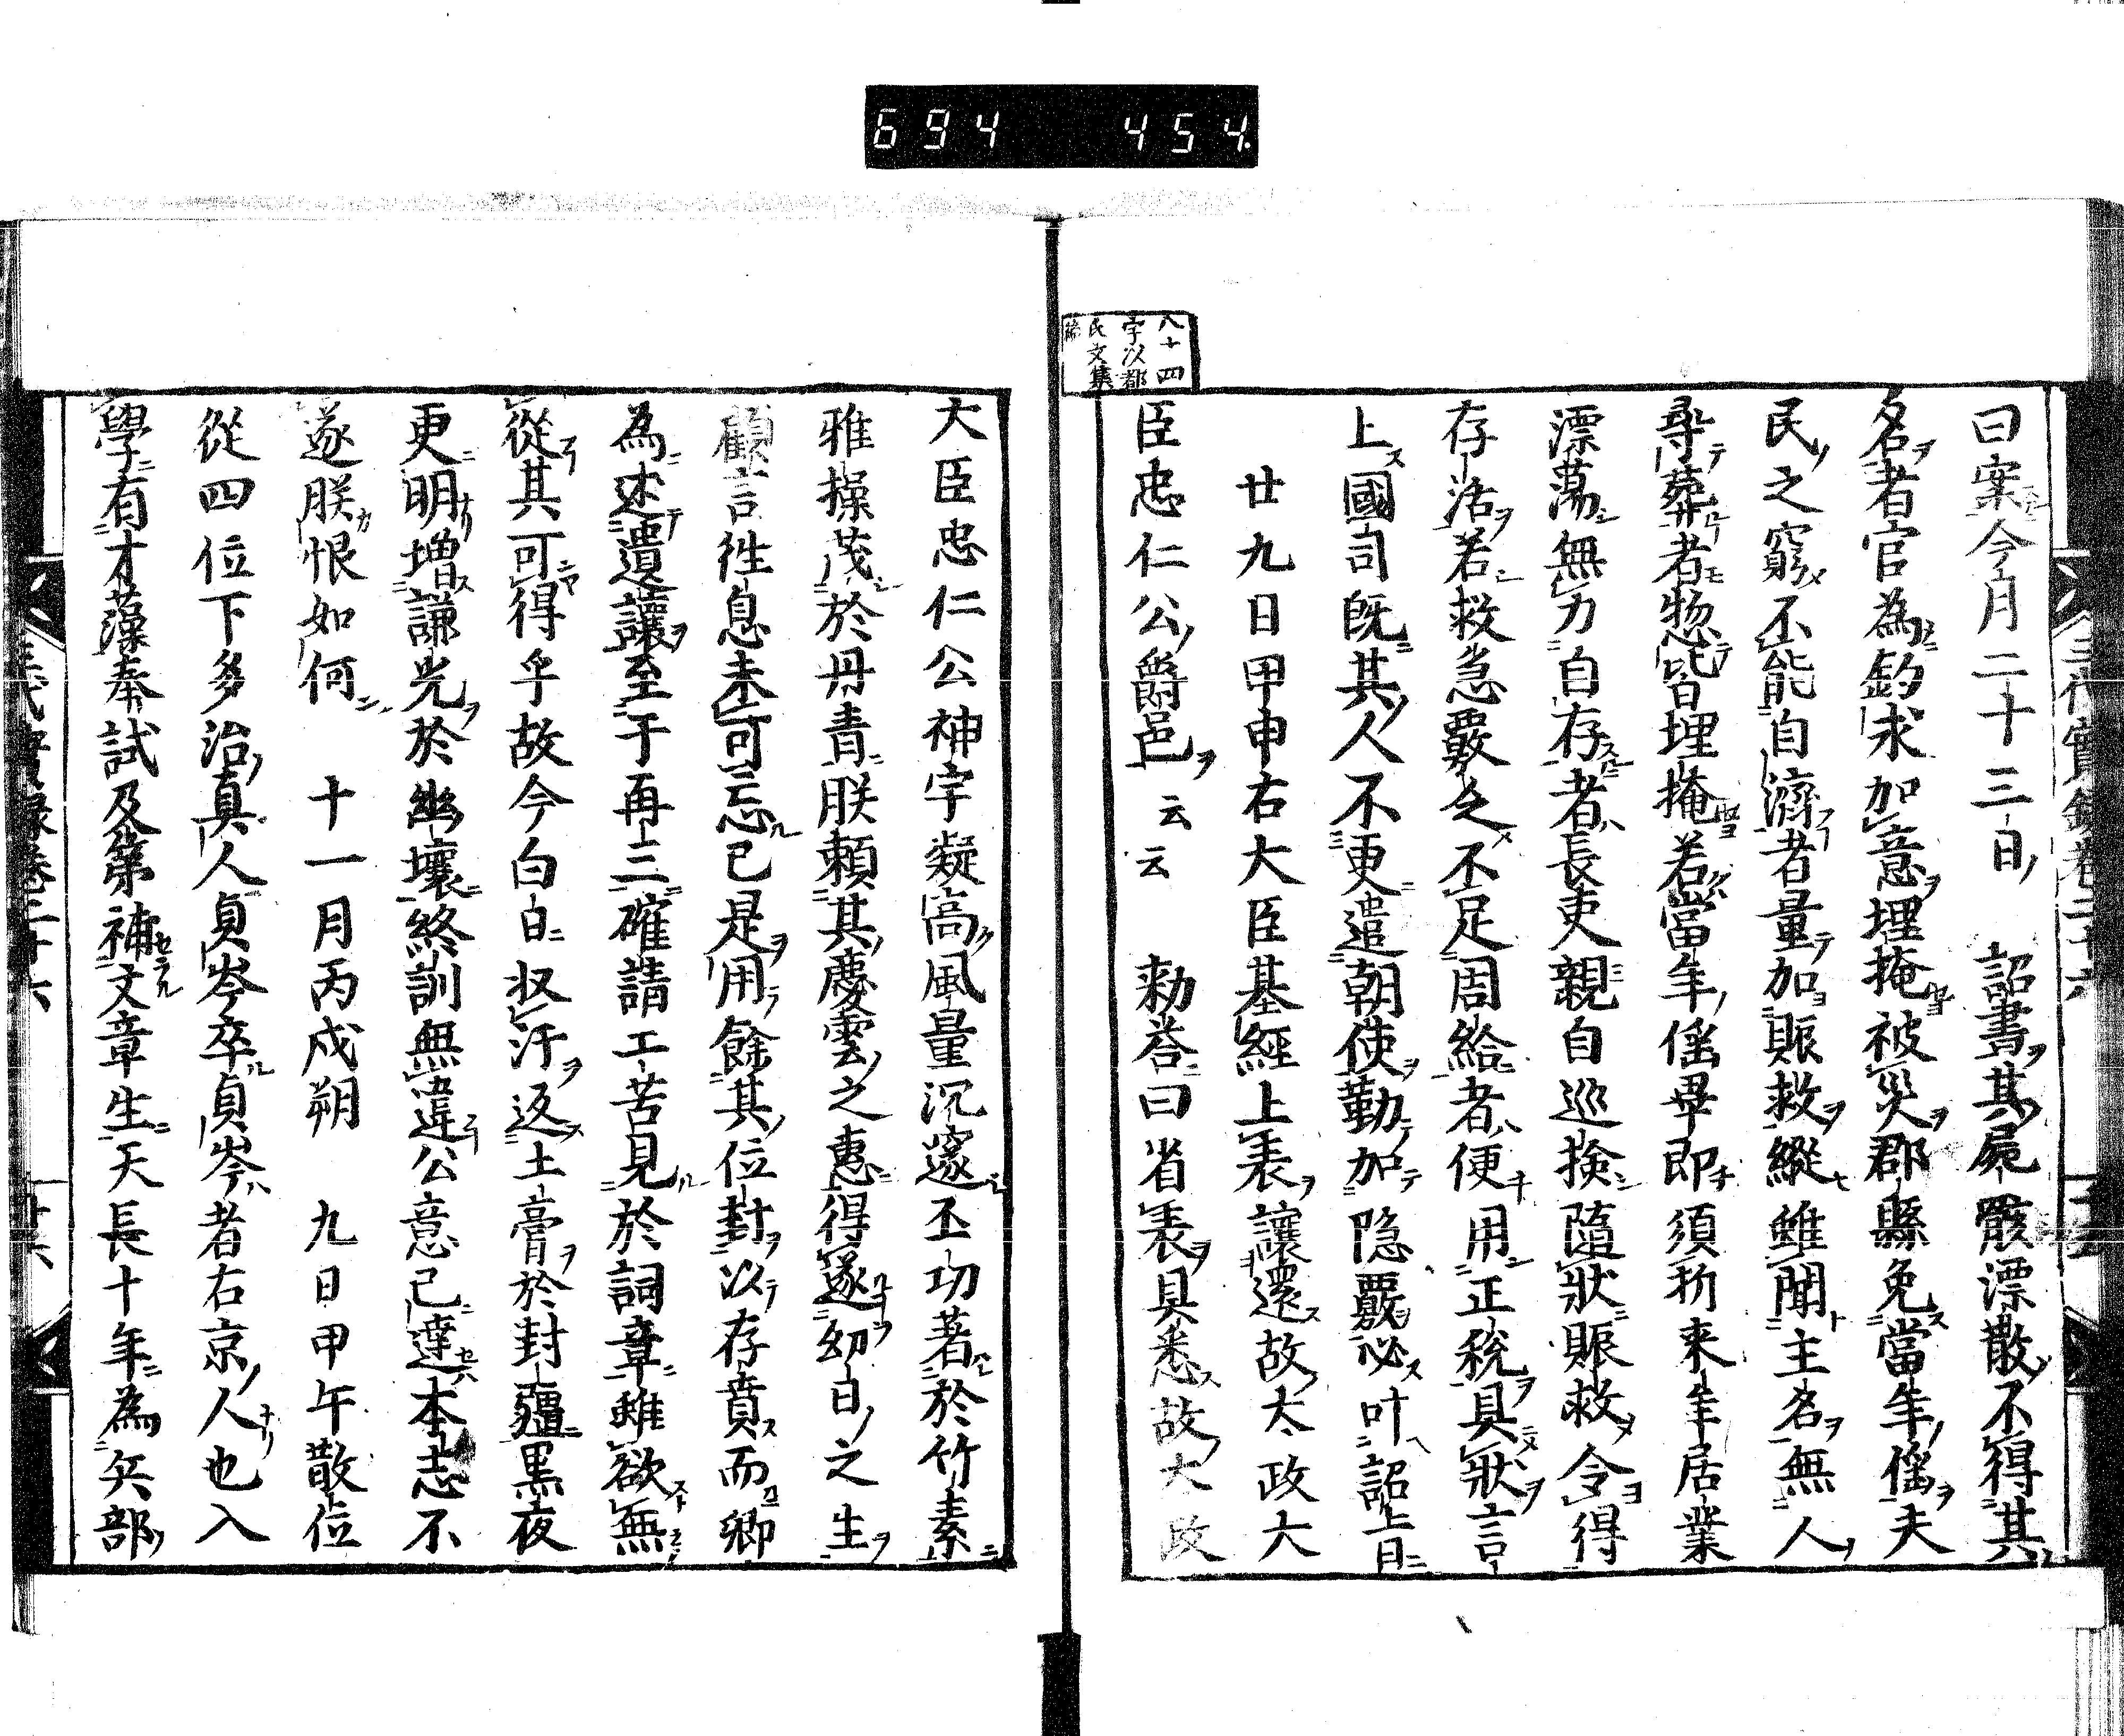 694 454
八十四
字以都
氏文集
三代實錄卷二十六
曰案今月二十三日詔書其屍骸漂散不得其
名者官為釣求加意埋掩被災郡縣免當年徭夫
民之窮不能自濟者量加賑救縱雖聞主名無人
尋葬者惣皆埋掩若當年徭畢即須折来年居業
漂蕩無力自存者長吏親自巡撿隨狀賑救令得
存活若救急覈之不足周給者便用正稅具狀言
上國司既其人不更遣朝使勤加隐覈必叶詔旨
廿九日甲申右大臣基經上表讓還故太政大
臣忠仁公爵邑云云勅荅曰省表具悉故大政
大臣忠仁公神宇凝高風量沉邃丕功著於竹素
雅操茂於丹青朕賴其慶雲之惠得遂幼日之生
顧言徃息未可忘已是用餘其位封以存賁而卿
為述遺讓至于再三確請工苦見於詞章雖欲無
從其可得乎故今白白収汗返土膏於封疆黑夜
更明增謙光於幽壤終訓無違公意已達本志不
遂朕恨如何 十一月丙戌朔 九日甲午散位
從四位下多治真人貞岑卒貞岑者右京人也入
學有才藻奉試及第補文章生天長十年為兵部
三代實錄卷二十六